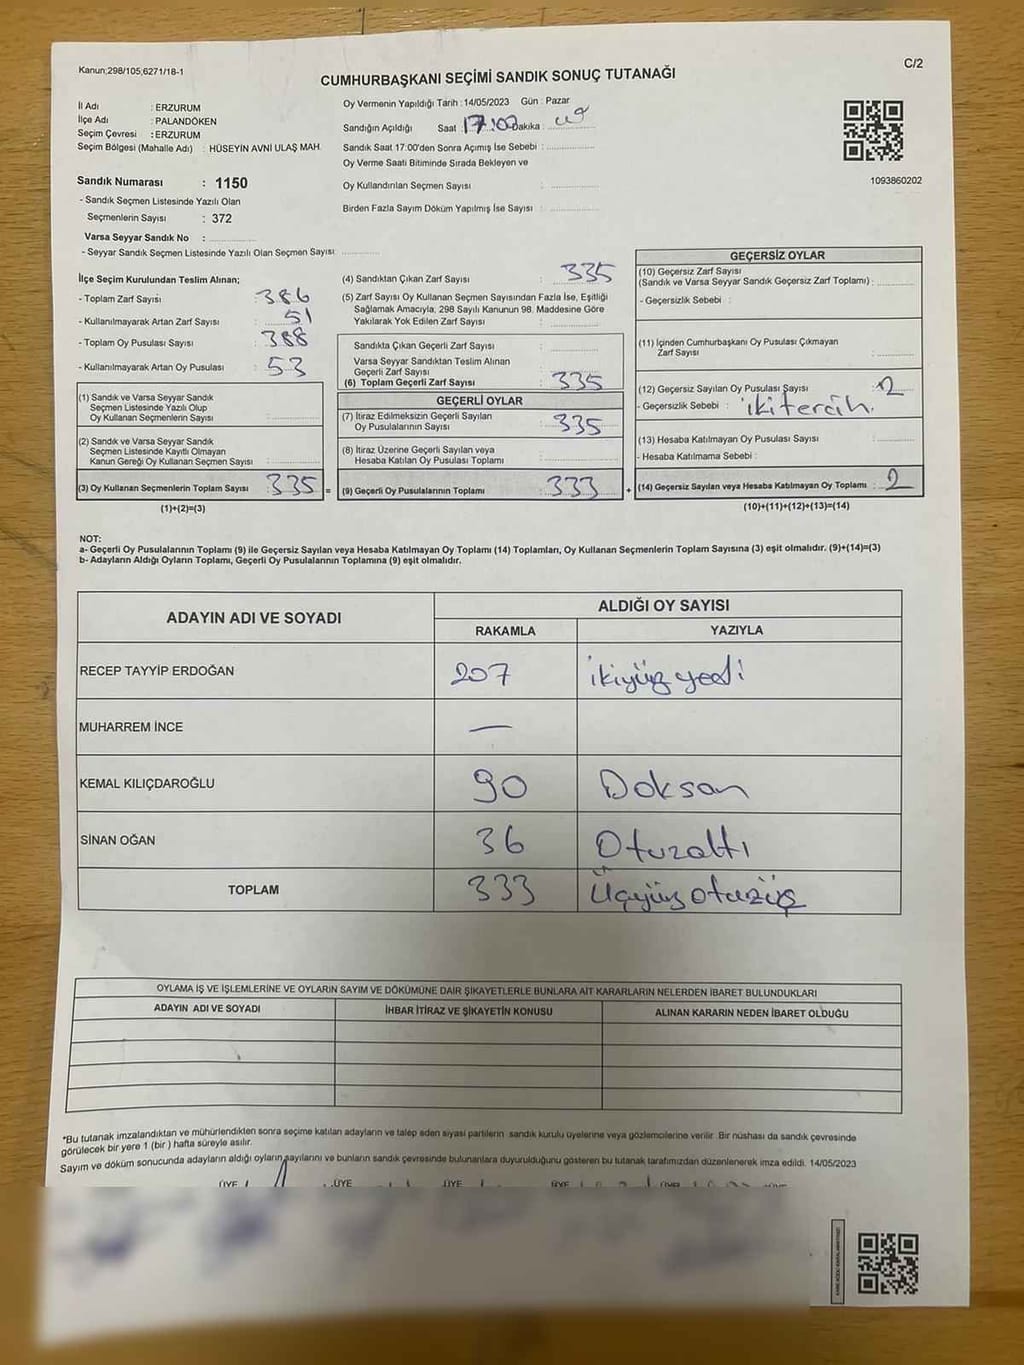 Kanun;298/105,6271/18-1
C/2
CUMHURBAŞKANI SEÇİMİ SANDIK SONUÇ TUTANAĞI
İl Adı : ERZURUM
İlçe Adı : PALANDÖKEN
Seçim Çevresi : ERZURUM
Seçim Bölgesi (Mahalle Adı) : HÜSEYİN AVNİ ULAŞ MAH.
Sandık Numarası : 1150
- Sandık Seçmen Listesinde Yazılı Olan
Seçmenlerin Sayısı : 372
Varsa Seyyar Sandık No :
- Seyyar Sandık Seçmen Listesinde Yazılı Olan Seçmen Sayısı
Oy Vermenin Yapıldığı Tarih : 14/05/2023 Gün : Pazar
Sandığın Açıldığı Saat : 17:02 Dakika :
Sandık Saat 17:00'den Sonra Açımış İse Sebebi :
Oy Verme Saati Bitiminde Sırada Bekleyen ve
Oy Kullandırılan Seçmen Sayısı :
Birden Fazla Sayım Döküm Yapılmış İse Sayısı :
1093860202
İlçe Seçim Kurulundan Teslim Alınan;
- Toplam Zarf Sayısı : 386
- Kullanılmayarak Artan Zarf Sayısı : 51
- Toplam Oy Pusulası Sayısı : 388
- Kullanılmayarak Artan Oy Pusulası : 53
(1) Sandık ve Varsa Seyyar Sandık
Seçmen Listesinde Yazılı Olup
Oy Kullanan Seçmenlerin Sayısı :
(2) Sandık ve Varsa Seyyar Sandık
Seçmen Listesinde Kayıtlı Olmayan
Kanun Gereği Oy Kullanan Seçmen Sayısı :
(3) Oy Kullanan Seçmenlerin Toplam Sayısı : 335 =
(1)+(2)=(3)
(4) Sandıktan Çıkan Zarf Sayısı : 335
(5) Zarf Sayısı Oy Kullanan Seçmen Sayısından Fazla İse, Eşitliği
Sağlamak Amacıyla; 298 Sayılı Kanunun 98. Maddesine Göre
Yakılarak Yok Edilen Zarf Sayısı :
Sandıkta Çıkan Geçerli Zarf Sayısı :
Varsa Seyyar Sandıktan Teslim Alınan
Geçerli Zarf Sayısı :
(6) Toplam Geçerli Zarf Sayısı : 335
GEÇERLİ OYLAR
(7) İtiraz Edilmeksizin Geçerli Sayılan
Oy Pusulalarının Sayısı : 335
(8) İtiraz Üzerine Geçerli Sayılan veya
Hesaba Katılan Oy Pusulası Toplamı :
(9) Geçerli Oy Pusulalarının Toplamı : 333 +
GEÇERSİZ OYLAR
(10) Geçersiz Zarf Sayısı
(Sandık ve Varsa Seyyar Sandık Geçersiz Zarf Toplamı) :
- Geçersizlik Sebebi :
(11) İçinden Cumhurbaşkanı Oy Pusulası Çıkmayan
Zarf Sayısı :
(12) Geçersiz Sayılan Oy Pusulası Sayısı : 2
- Geçersizlik Sebebi : iki tercih.
(13) Hesaba Katılmayan Oy Pusulası Sayısı :
- Hesaba Katılmama Sebebi :
(14) Geçersiz Sayılan veya Hesaba Katılmayan Oy Toplamı : 2
(10)+(11)+(12)+(13)=(14)
NOT:
a- Geçerli Oy Pusulalarının Toplamı (9) ile Geçersiz Sayılan veya Hesaba Katılmayan Oy Toplamı (14) Toplamları, Oy Kullanan Seçmenlerin Toplam Sayısına (3) eşit olmalıdır. (9)+(14)=(3)
b- Adayların Aldığı Oyların Toplamı, Geçerli Oy Pusulalarının Toplamına (9) eşit olmalıdır.
ADAYIN ADI VE SOYADI ALDIĞI OY SAYISI
RAKAMLA YAZIYLA
RECEP TAYYİP ERDOĞAN 207 ikiyüz yedi
MUHARREM İNCE —
KEMAL KILIÇDAROĞLU 90 Doksan
SİNAN OĞAN 36 Otuzaltı
TOPLAM 333 Üçyüz otuzüç
OYLAMA İŞ VE İŞLEMLERİNE VE OYLARIN SAYIM VE DÖKÜMÜNE DAİR ŞİKAYETLERLE BUNLARA AİT KARARLARIN NELERDEN İBARET BULUNDUKLARI
ADAYIN ADI VE SOYADI İHBAR İTİRAZ VE ŞİKAYETİN KONUSU ALINAN KARARIN NEDEN İBARET OLDUĞU
*Bu tutanak imzalandıktan ve mühürlendikten sonra seçime katılan adayların ve talep eden siyasi partilerin sandık kurulu üyelerine veya gözlemcilerine verilir. Bir nüshası da sandık çevresinde
görülecek bir yere 1 (bir) hafta süreyle asılır.
Sayım ve döküm sonucunda adayların aldığı oyların sayılarını ve bunların sandık çevresinde bulunanlara duyurulduğunu gösteren bu tutanak tarafımızdan düzenlenerek imza edildi. 14/05/2023
ÜYE ÜYE ÜYE ÜYE